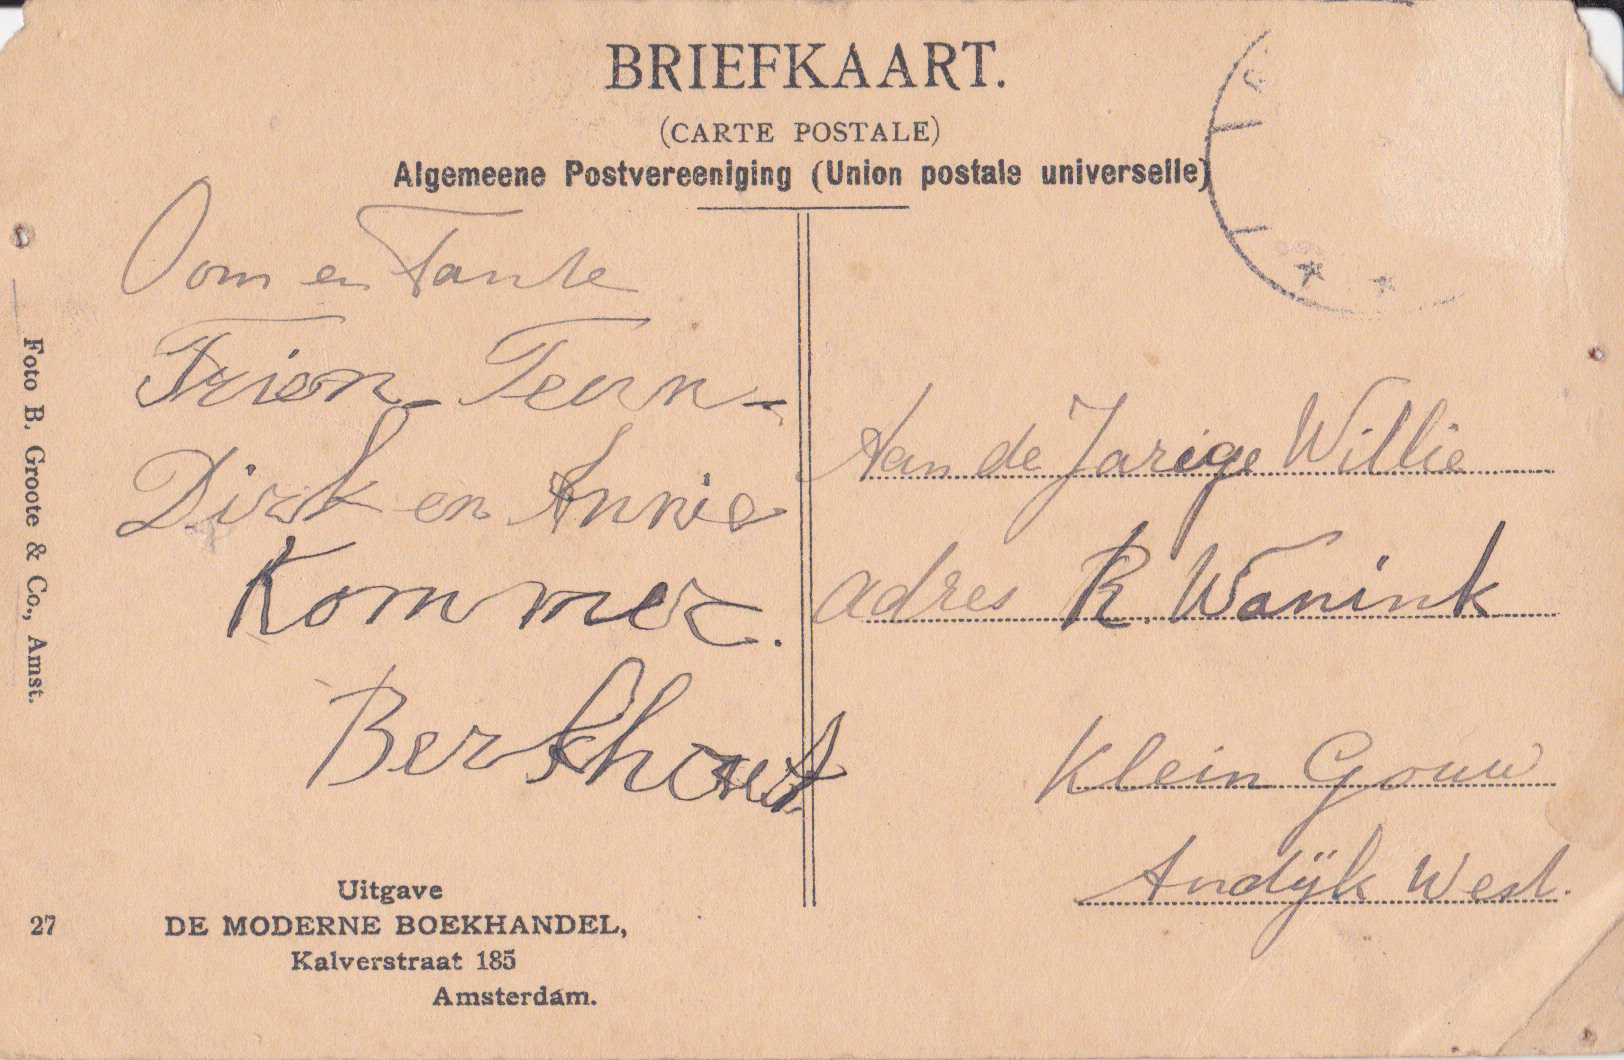 BRIEFKAART.
(CARTE POSTALE)
Algemeene Postvereeniging (Union postale universelle)
Oom en Tante
Trien - Teun -
Dirk en Annie
Kommer.
Berkhout
Aan de Jarige Willie
adres R. Wanink
Klein Gouw
Andijk West.
Foto B. Groote & Co., Amst.
27
Uitgave
DE MODERNE BOEKHANDEL,
Kalverstraat 185
Amsterdam.